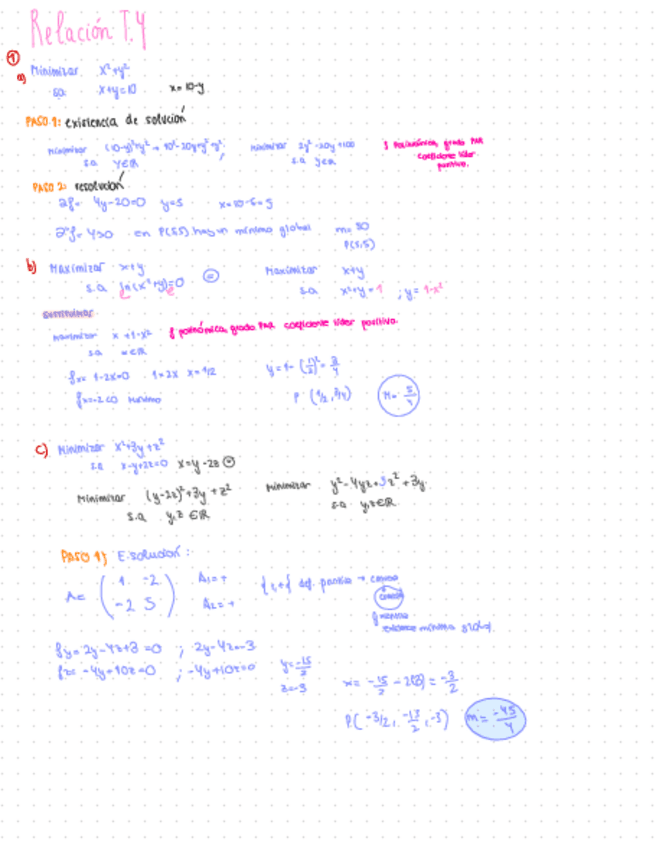 Relación T.4
①
a) Minimizar x²+y²
sa: x+y=10 x=10-y
PASO 1: existencia de solución
Minimizar (10-y)²+y² → 10²-20y+y²+y² ; minimizar 2y²-20y+100
s.a y∈R s.a y∈R
f polinómica, grado PAR
coeficiente líder
positivo.
PASO 2: resolución
∂f= 4y-20=0 y=5 x=10-5=5
∂²f= 4>0 en P(5,5) hay un mínimo global m=50
P(5,5)
b) Maximizar x+y Maximizar x+y
s.a ln(x²+y)=0 s.a x²+y=1 ; y=1-x²
sustituimos
Maximizar x+1-x² f polinómica, grado PAR coeficiente líder positivo.
s.a x∈R
fx= 1-2x=0 1=2x x=1/2 y=1-(1/2)²=3/4
fx=-2<0 Máximo P (1/2, 3/4) M= 5/4
c) Minimizar x²+3y+z²
s.a x-y+2z=0 x=y-2z
Minimizar (y-2z)²+3y+z² minimizar y²-4yz+5z²+3y
s.a y,z∈R s.a y,z∈R
PASO 1) E.solución:
A= ( 1 -2 -2 5 ) A₁=+ A₂=+ {+,+} def. positiva → convexa
existence mínimo global.
fy= 2y-4z+3=0 ; 2y-4z=-3
fz= -4y+10z=0 ; -4y+10z=0 y=-15/2
z=-3 x= -15/2 -2(3) = -3/2
P(-3/2, -15/2, -3) m= -45/4